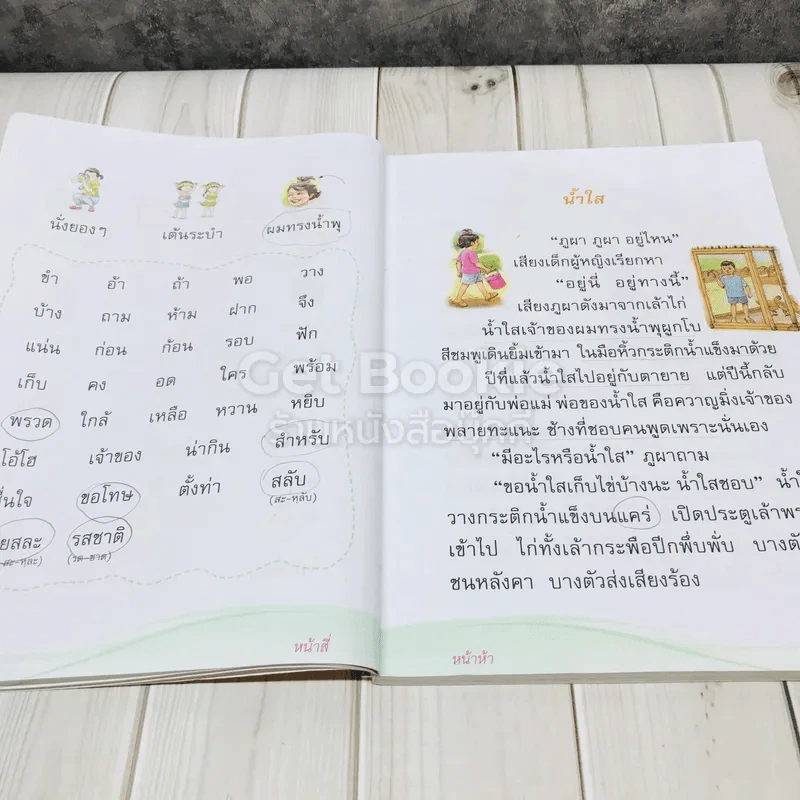 นั่งยองๆ เต้นระบำ ผมทรงน้ำพุ
ขำ อ้า ถ้า พอ วาง
บ้าง ถาม ห้าม ฝาก จึง
แน่น ก่อน ก้อน รอบ ฟัก
เก็บ คง อด ใคร พร้อม
พรวด ใกล้ เหลือ หวาน หยิบ
โอ้โฮ เจ้าของ น่ากิน สำหรับ
ขอโทษ ตั้งท่า สลับ
(สะ-หฺลับ)
รสชาติ
(รด-ชาด)
หน้าสี่
น้ำใส
“ภูผา ภูผา อยู่ไหน”
เสียงเด็กผู้หญิงเรียกหา
“อยู่นี่ อยู่ทางนี้”
เสียงภูผาดังมาจากเล้าไก่
น้ำใสเจ้าของผมทรงน้ำพุผูกโบ
สีชมพูเดินยิ้มเข้ามา ในมือหิ้วกระติกน้ำแข็งมาด้วย
ปีที่แล้วน้ำใสไปอยู่กับตายาย แต่ปีนี้กลับ
มาอยู่กับพ่อแม่ พ่อของน้ำใส คือควาญมิ่งเจ้าของ
พลายทะแนะ ช้างที่ชอบคนพูดเพราะนั่นเอง
“มีอะไรหรือน้ำใส” ภูผาถาม
“ขอน้ำใสเก็บไข่บ้างนะ น้ำใสชอบ”
วางกระติกน้ำแข็งบนแคร่ เปิดประตูเล้า
เข้าไป ไก่ทั้งเล้ากระพือปีกพึ่บพั่บ
ชนหลังคา บางตัวส่งเสียงร้อง
หน้าห้า
Get Bookie
ร้านหนังสือบุ๊คกี้